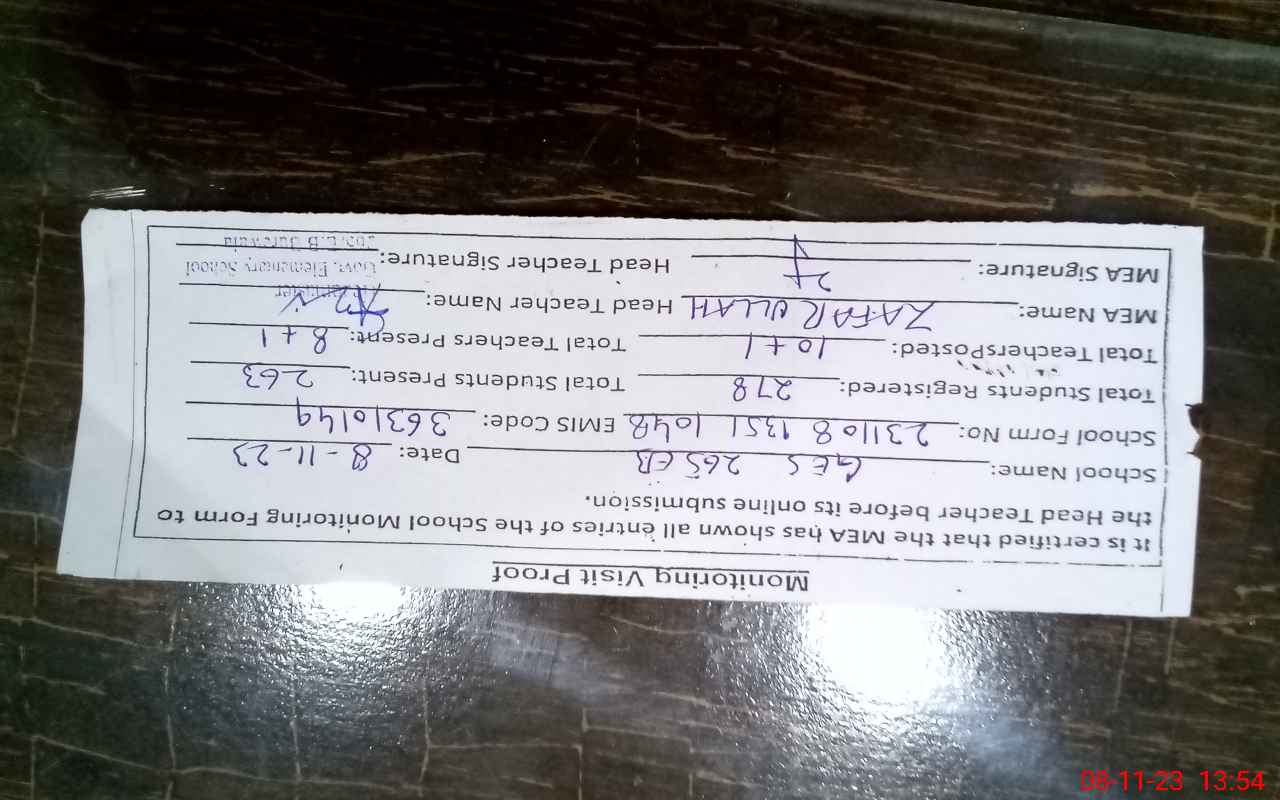 Monitoring Visit Proof
It is certified that the MEA has shown all entries of the School Monitoring Form to
the Head Teacher before its online submission.
School Name: GES 265 EB Date: 8-11-23
School Form No: 231108 1351 1048 EMIS Code: 36310149
Total Students Registered: 278 Total Students Present: 263
Total TeachersPosted: 10+1 Total Teachers Present: 8+1
MEA Name: ZAFAR ULLAH Head Teacher Name:
MEA Signature: Head Teacher Signature:
Govt. Elementary School
265/E.B Burewala
08-11-23 13:54